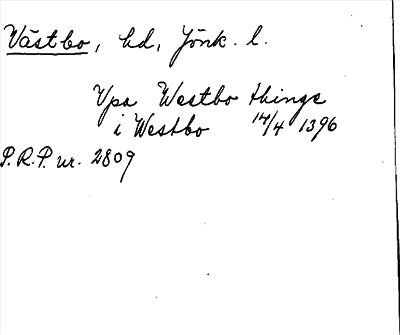 Västbo, hd, Jönk. l.
Vpa Westbo thinge
i Westbo 14/4 1396
P.R.P. nr. 2809